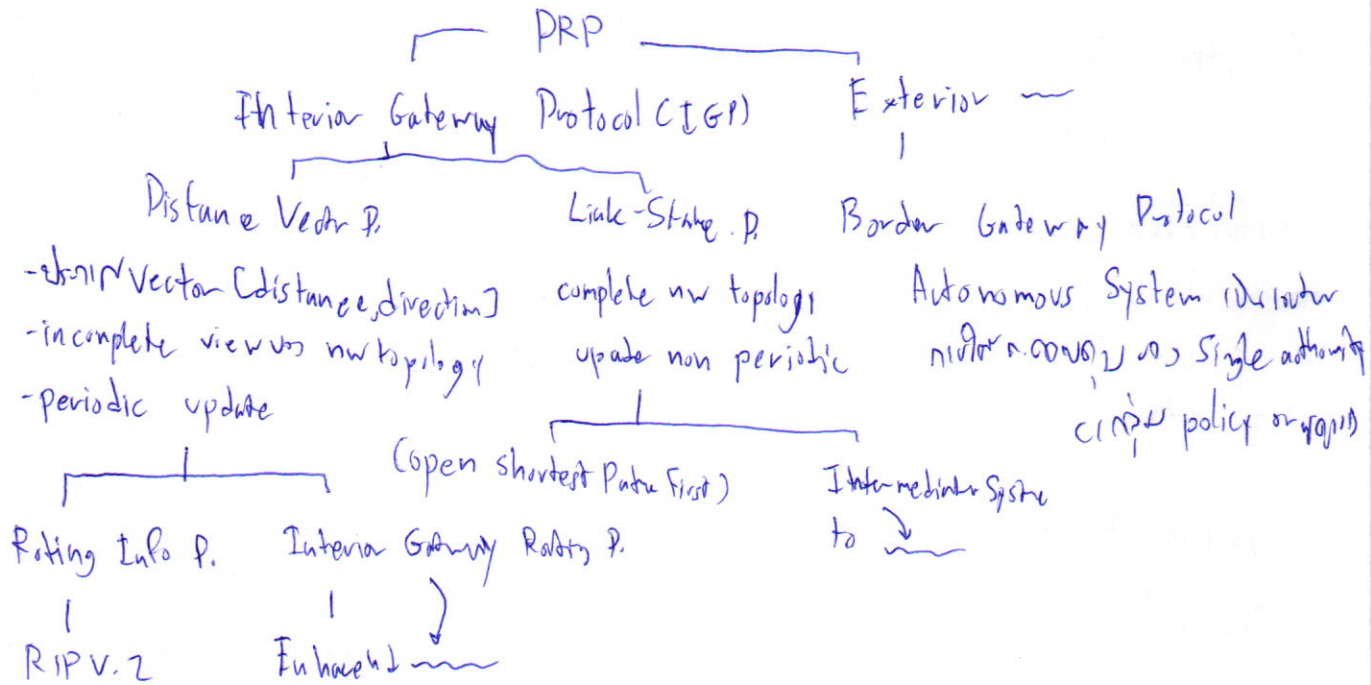 DRP
Interior Gateway Protocol (IGP)
Exterior
Distance Vector P.
Link-State P.
Border Gateway Protocol
-ประกาศ vector [distance, direction]
-incomplete view ของ nw topology
-periodic update
complete nw topology
upate non periodic
Autonomous System
single authority
policy
(open shortest Path First)
Intermediate System
to
Roting Info P.
Interior Gateway Routing P.
RIP V.2
Enhaced